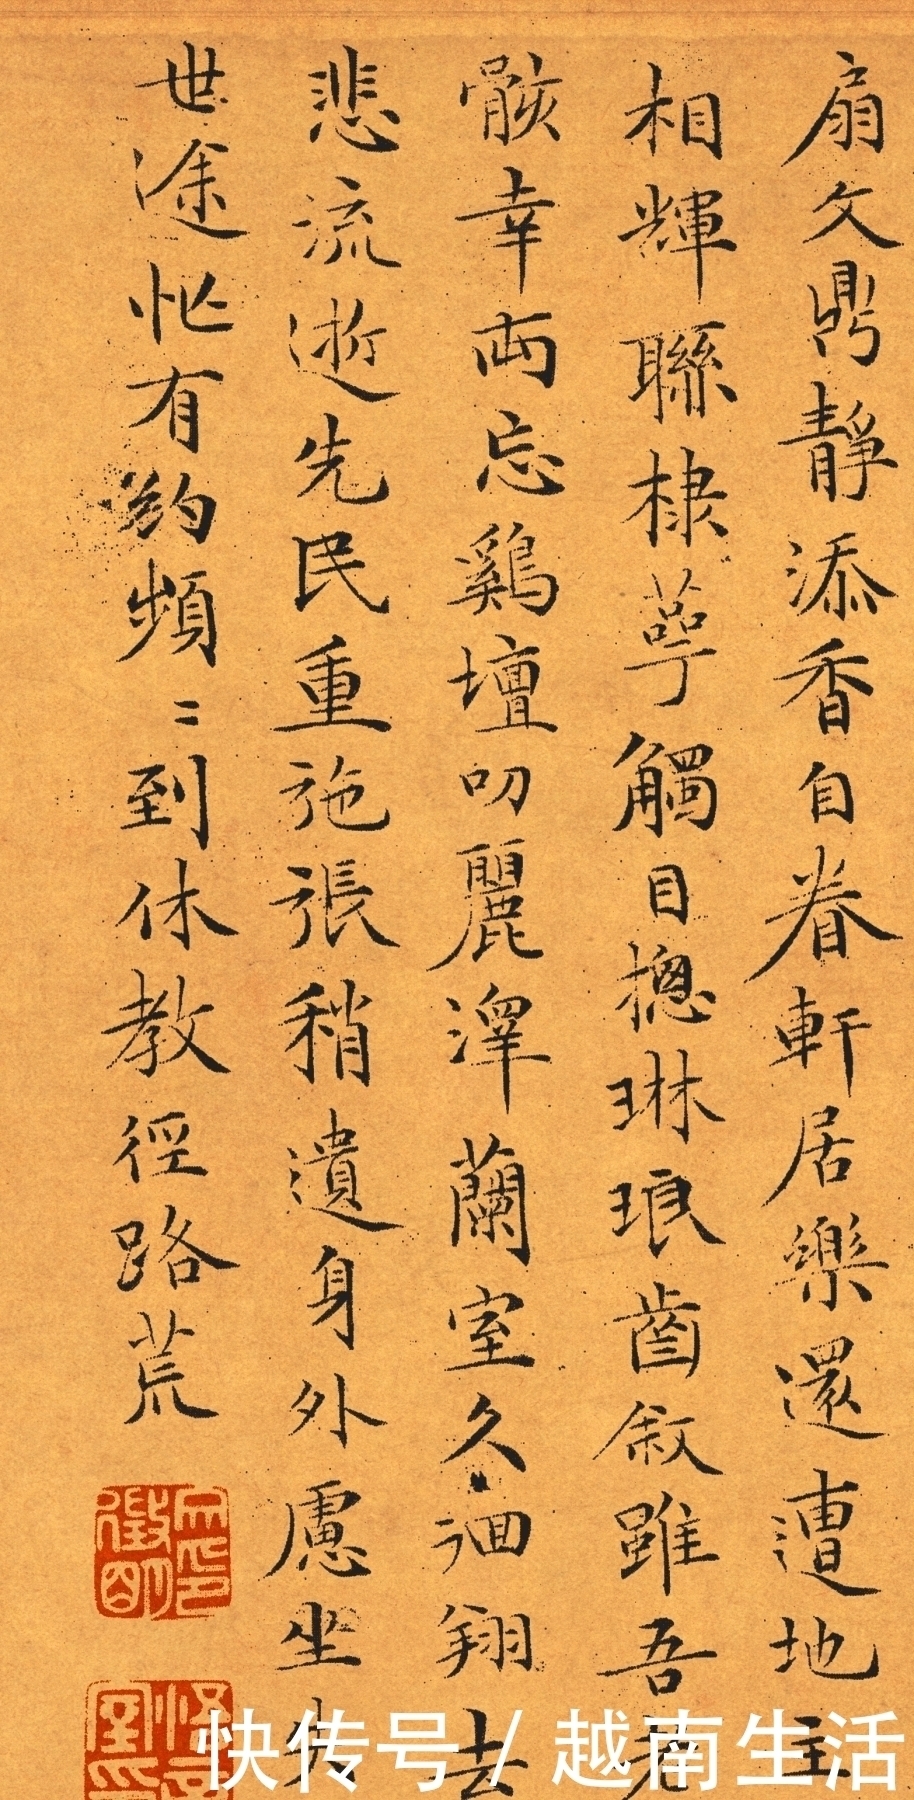 扇文鼎靜添香自眷軒居樂還遭地主
相輝聯棣萼觸目摠琳琅齒敘雖吾君
骸幸兩忘鷄壇叨麗澤蘭室久徊翔去
悲流逝先民重弛張稍遺身外慮坐失
世途忙有約頻〻到休教徑路荒
徵明
快传号 / 越南生活